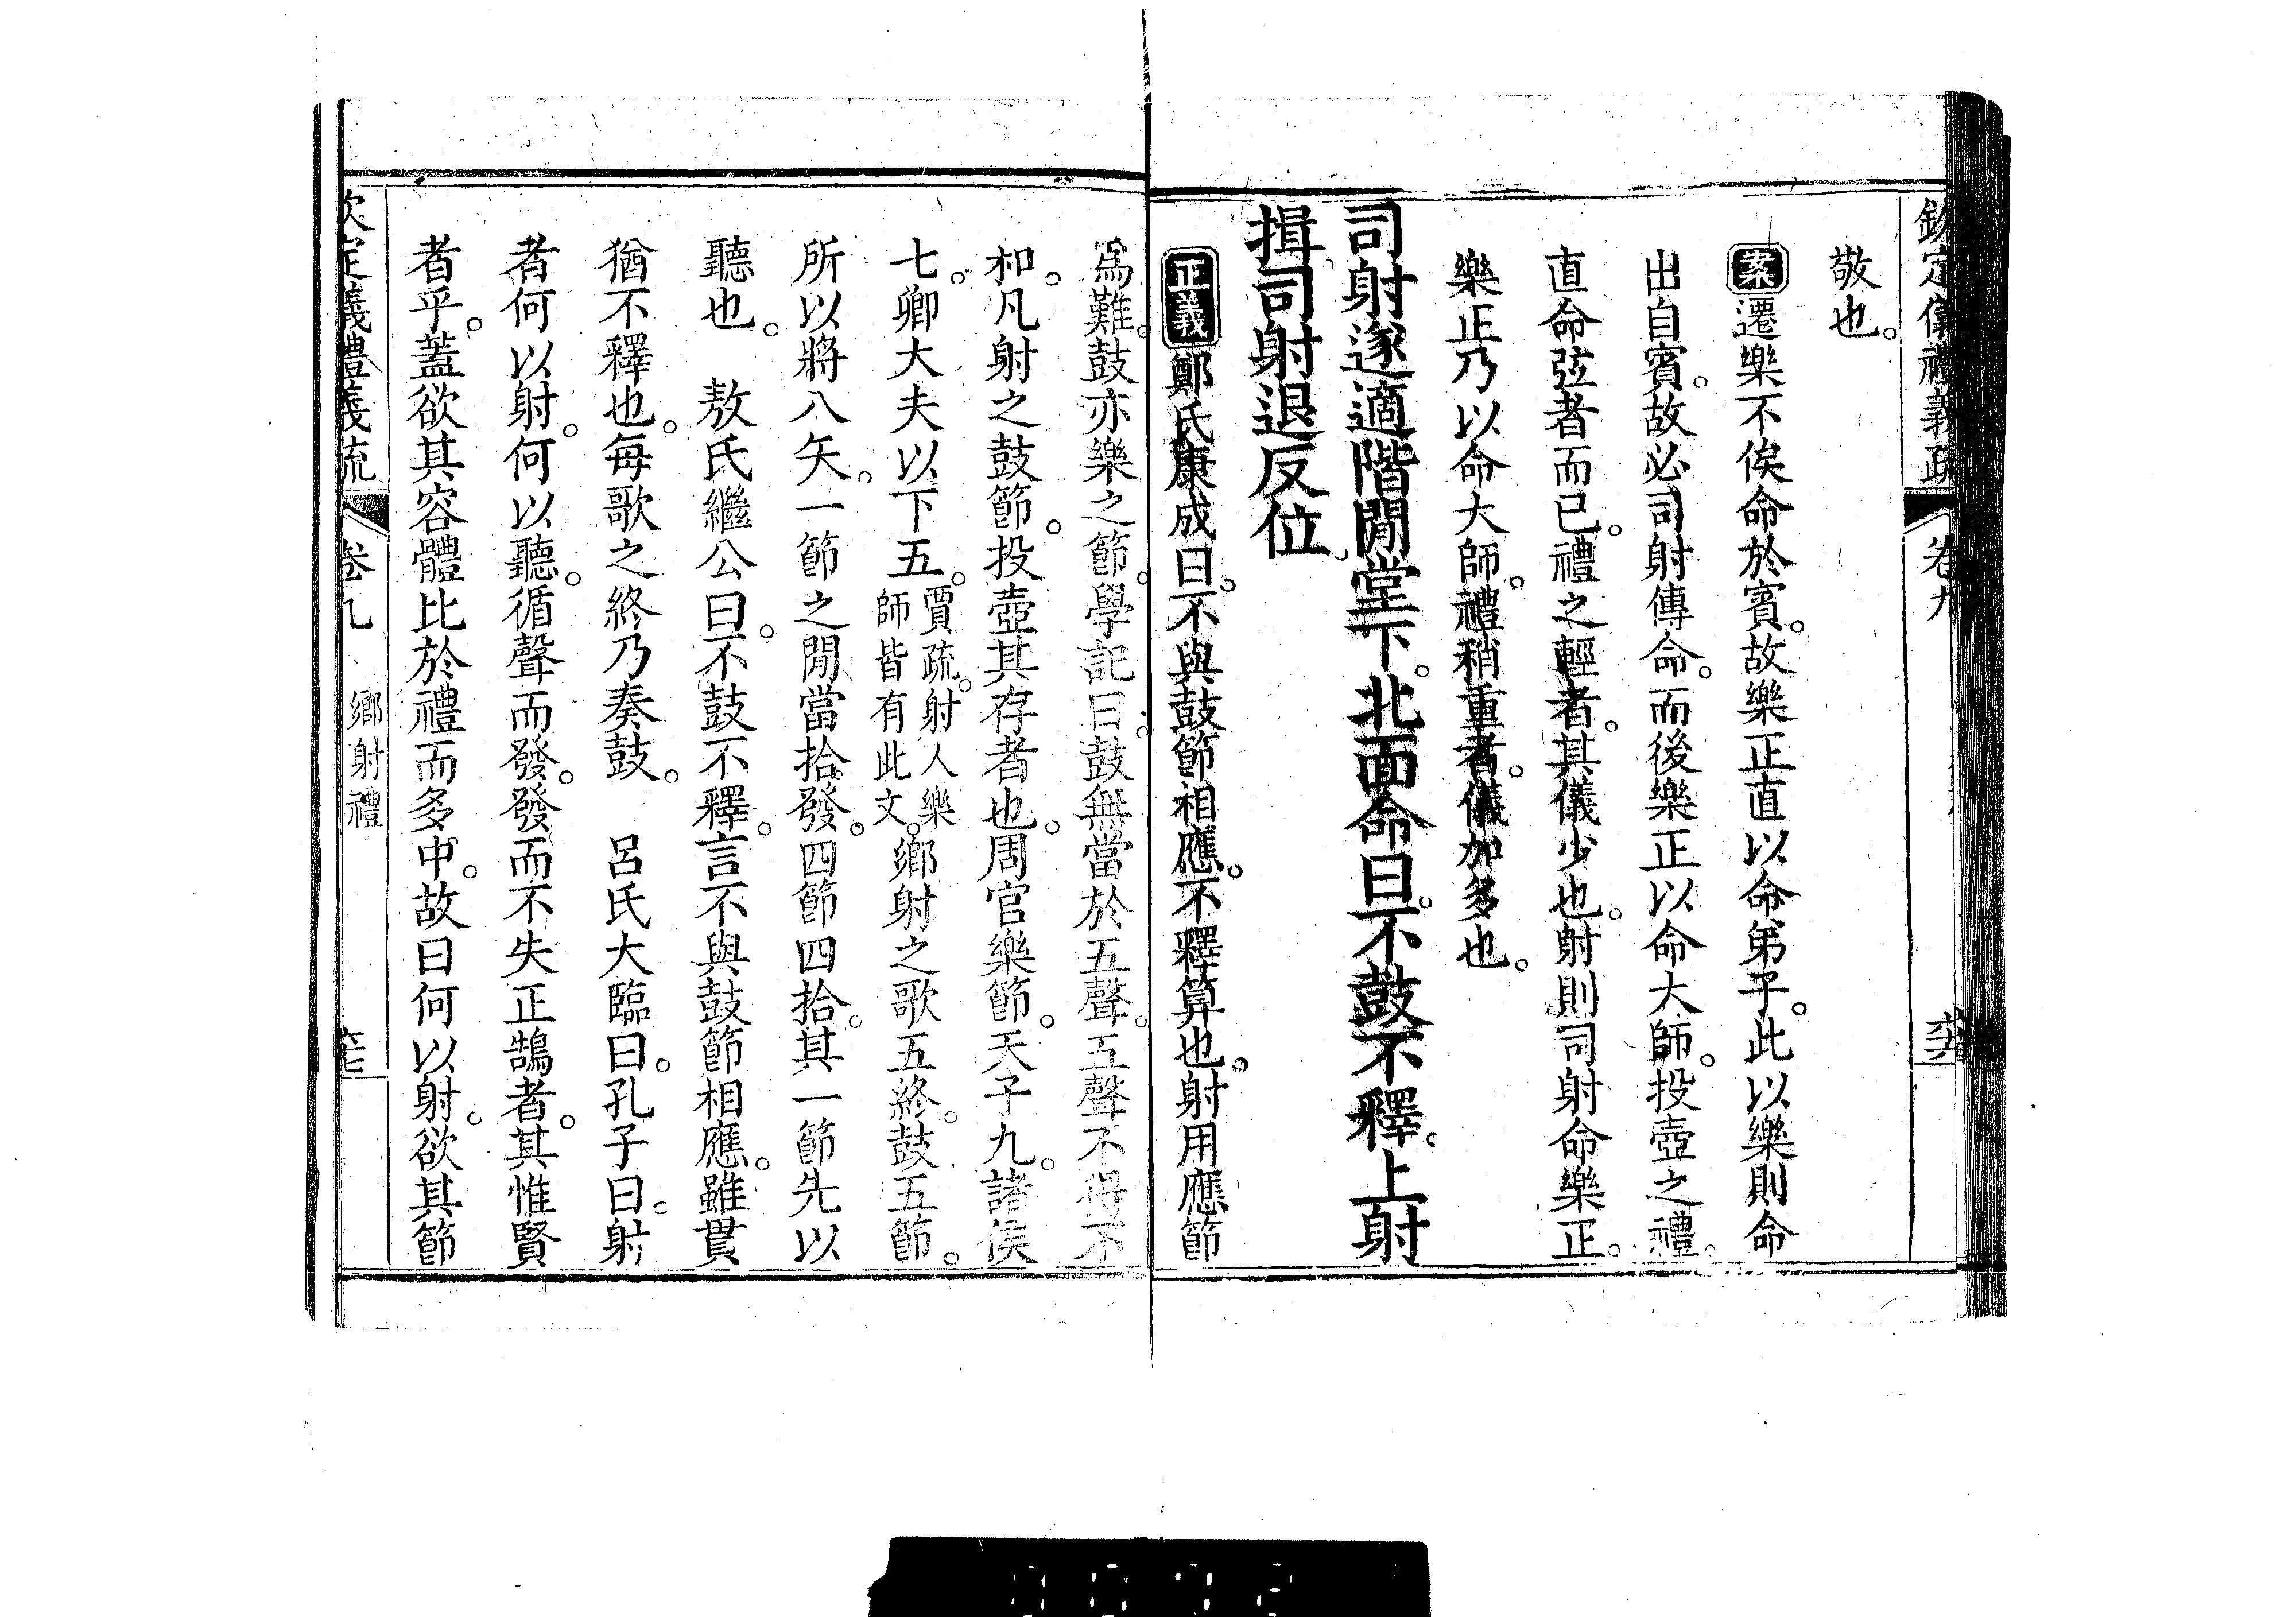 欽定儀禮義疏 卷九
敬也。
案遷樂不俟命於賓。故樂正直以命弟子。此以樂則命
出自賓。故必司射傳命。而後樂正以命大師。投壺之禮。
直命弦者而已。禮之輕者。其儀少也。射則司射命樂正。
樂正乃以命大師。禮稍重者。儀加多也。
司射遂適階閒堂下。北面命曰。不鼓不釋。上射
揖。司射退反位。
正義鄭氏康成曰。不與鼓節相應。不釋算也。射用應節
爲難。鼓亦樂之節。學記曰。鼓無當於五聲。五聲不得不
和。凡射之鼓節。投壺其存者也。周官樂節。天子九。諸侯
七。卿大夫以下五。賈疏。射人樂師皆有此文。鄉射之歌五終。鼓五節。
所以將八矢。一節之閒當拾發。四節四拾。其一節先以
聽也。 敖氏繼公曰。不鼓不釋。言不與鼓節相應。雖貫
猶不釋也。每歌之終乃奏鼓。 呂氏大臨曰。孔子曰。射
者何以射。何以聽。循聲而發。發而不失正鵠者。其惟賢
者乎。蓋欲其容體比於禮而多中。故曰何以射。欲其節
欽定儀禮義疏 卷九 鄉射禮